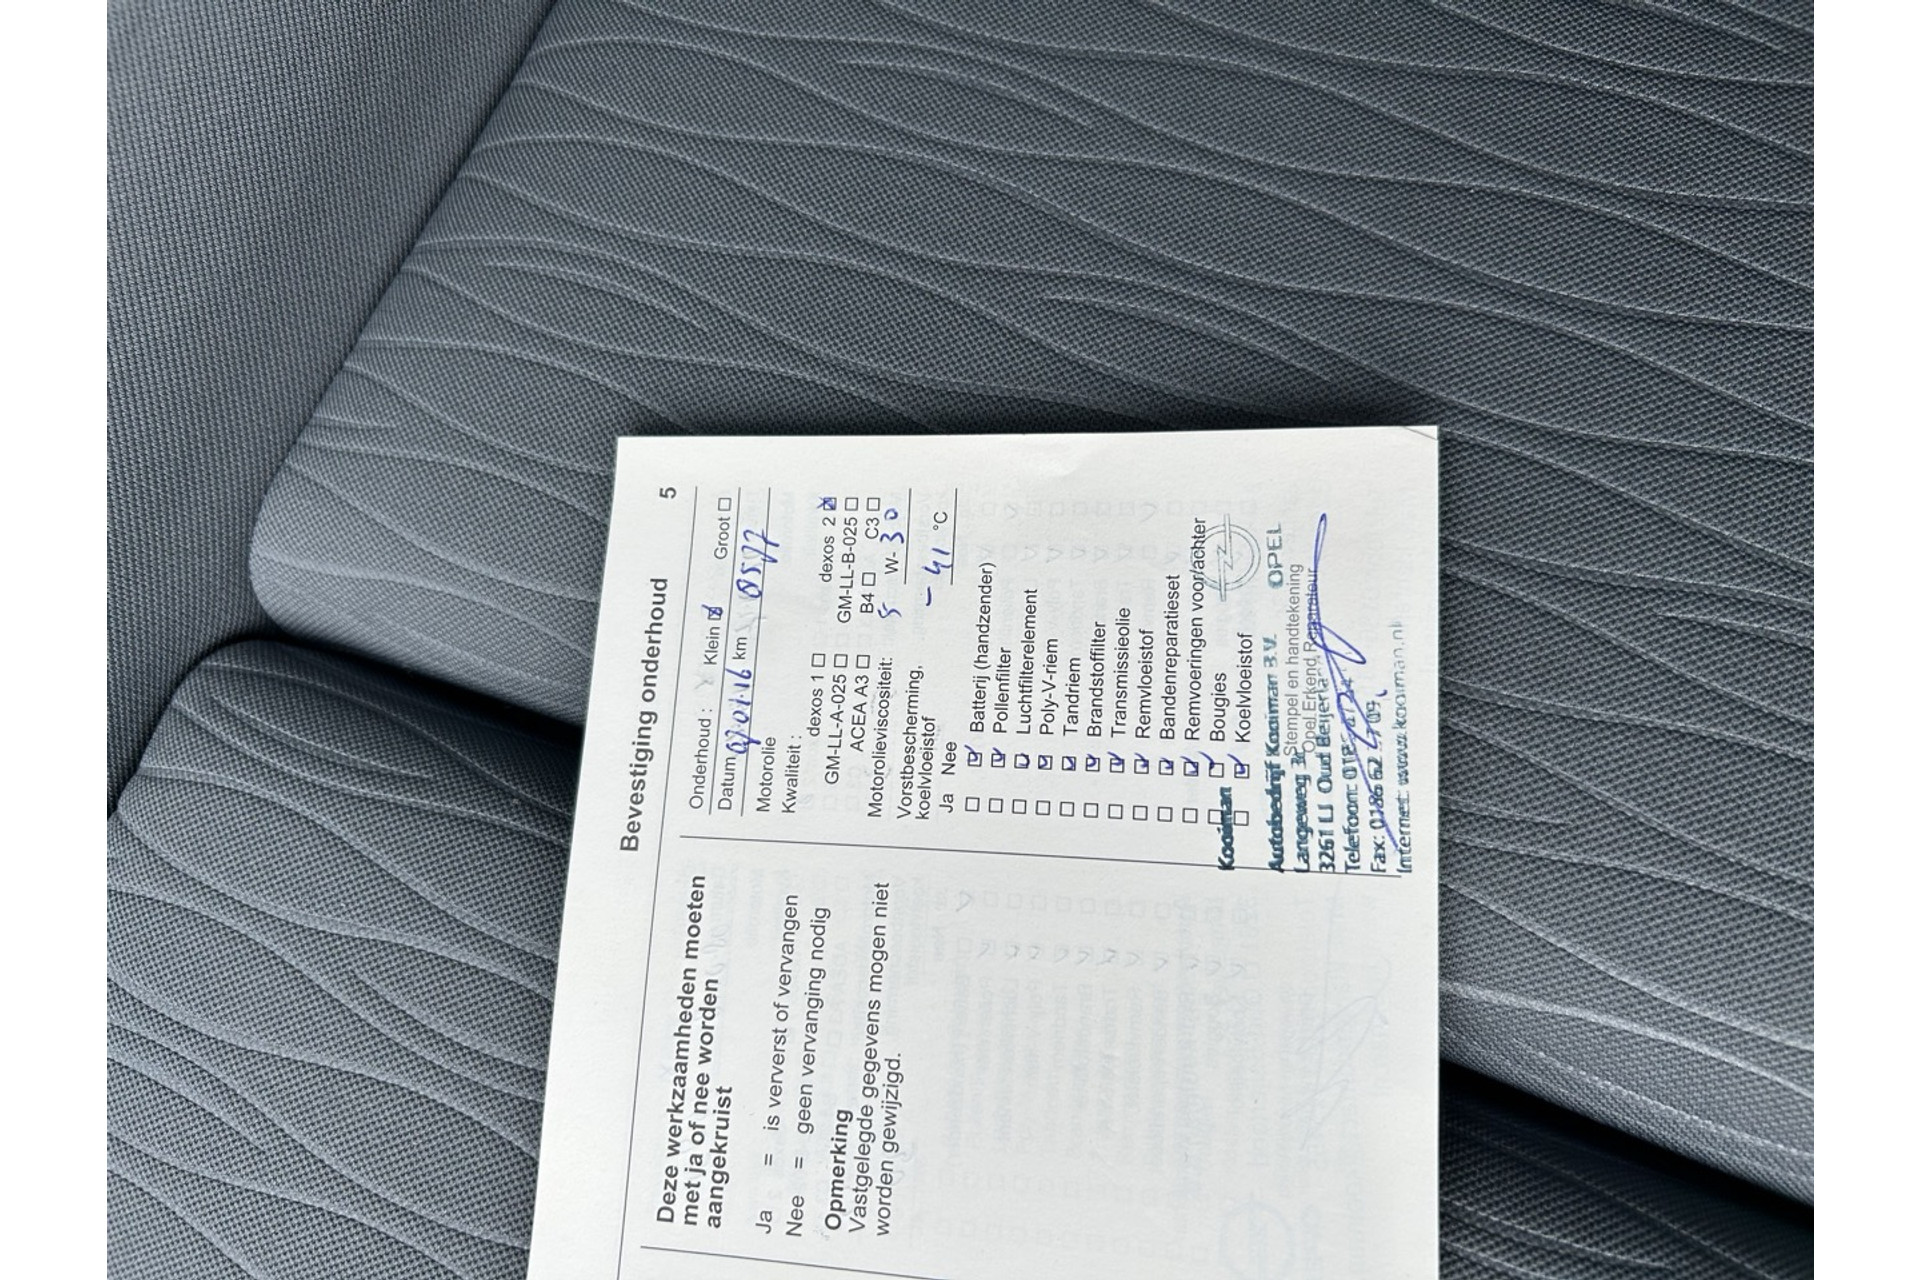 Bevestiging onderhoud 5
Deze werkzaamheden moeten
met ja of nee worden
aangekruist
Ja = is ververst of vervangen
Nee = geen vervanging nodig
Opmerking
Vastgelegde gegevens mogen niet
worden gewijzigd.
Onderhoud : Klein Groot
Datum km
Motorolie
Kwaliteit :
dexos 1 dexos 2
GM-LL-A-025 GM-LL-B-025
ACEA A3 B4 C3
Motorolieviscositeit: 5 W- 30
Vorstbescherming,
koelvloeistof - 41 °C
Ja Nee
Batterij (handzender)
Pollenfilter
Luchtfilterelement
Poly-V-riem
Tandriem
Brandstoffilter
Transmissieolie
Remvloeistof
Bandenreparatieset
Remvoeringen voor/achter
Bougies
Koelvloeistof
Kooiman
Autobedrijf Kooiman B.V. OPEL
Stempel en handtekening
Langeweg 3c Opel Erkend Reparateur
3261 LJ Oud Beijerland
Telefoon:
Fax:
Internet: www.kooiman.nl